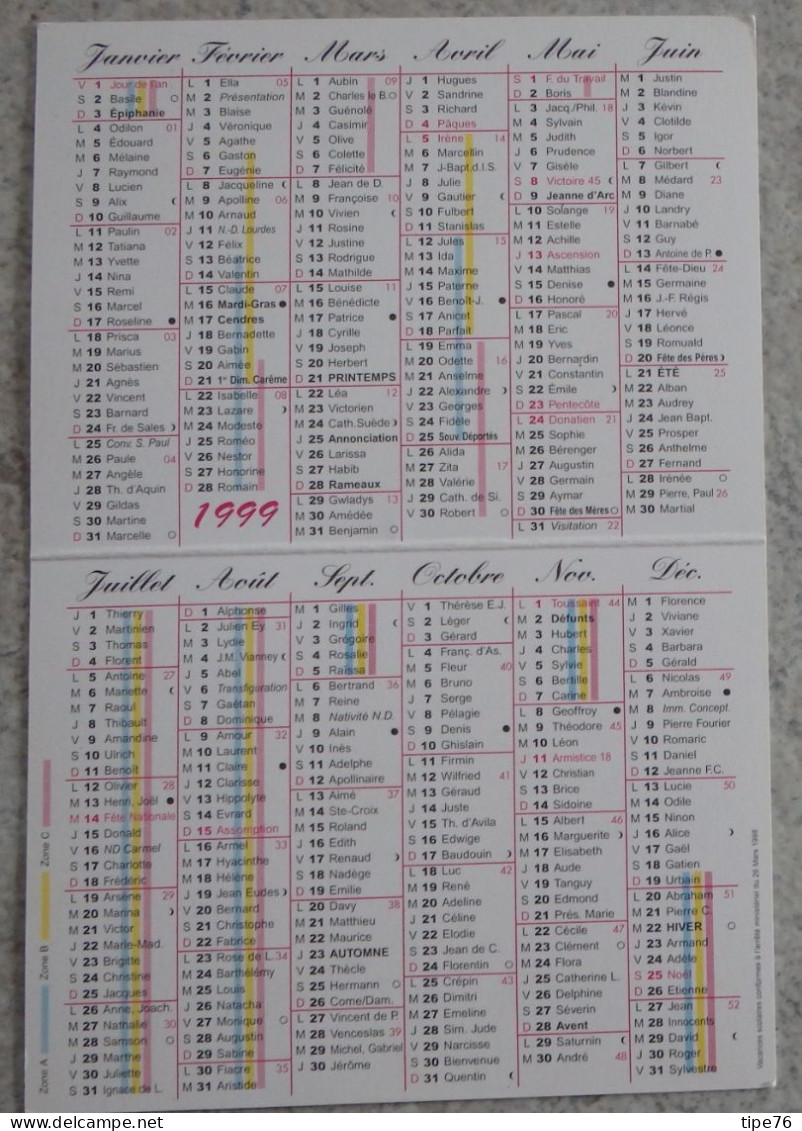 Janvier
V 1 Jour de l'an
S 2 Basile
D 3 Épiphanie
L 4 Odilon 01
M 5 Édouard
M 6 Mélaine
J 7 Raymond
V 8 Lucien
S 9 Alix
D 10 Guillaume
L 11 Paulin 02
M 12 Tatiana
M 13 Yvette
J 14 Nina
V 15 Remi
S 16 Marcel
D 17 Roseline
L 18 Prisca 03
M 19 Marius
M 20 Sébastien
J 21 Agnès
V 22 Vincent
S 23 Barnard
D 24 Fr. de Sales
L 25 Conv. S. Paul
M 26 Paule 04
M 27 Angèle
J 28 Th. d'Aquin
V 29 Gildas
S 30 Martine
D 31 Marcelle
Février
L 1 Ella 05
M 2 Présentation
M 3 Blaise
J 4 Véronique
V 5 Agathe
S 6 Gaston
D 7 Eugénie
L 8 Jacqueline
M 9 Apolline 06
M 10 Arnaud
J 11 N.-D. Lourdes
V 12 Félix
S 13 Béatrice
D 14 Valentin
L 15 Claude 07
M 16 Mardi-Gras
M 17 Cendres
J 18 Bernadette
V 19 Gabin
S 20 Aimée
D 21 1er Dim. Carême
L 22 Isabelle 08
M 23 Lazare
M 24 Modeste
J 25 Roméo
V 26 Nestor
S 27 Honorine
D 28 Romain
1999
Mars
L 1 Aubin 09
M 2 Charles le B.
M 3 Guénolé
J 4 Casimir
V 5 Olive
S 6 Colette
D 7 Félicité
L 8 Jean de D.
M 9 Françoise 10
M 10 Vivien
J 11 Rosine
V 12 Justine
S 13 Rodrigue
D 14 Mathilde
L 15 Louise 11
M 16 Bénédicte
M 17 Patrice
J 18 Cyrille
V 19 Joseph
S 20 Herbert
D 21 PRINTEMPS
L 22 Léa 12
M 23 Victorien
M 24 Cath.Suède
J 25 Annonciation
V 26 Larissa
S 27 Habib
D 28 Rameaux
L 29 Gwladys 13
M 30 Amédée
M 31 Benjamin
Avril
J 1 Hugues
V 2 Sandrine
S 3 Richard
D 4 Pâques
L 5 Irène 14
M 6 Marcellin
M 7 J-Bapt.d.l.S.
J 8 Julie
V 9 Gautier
S 10 Fulbert
D 11 Stanislas
L 12 Jules 15
M 13 Ida
M 14 Maxime
J 15 Paterne
V 16 Benoît-J.
S 17 Anicet
D 18 Parfait
L 19 Emma
M 20 Odette 16
M 21 Anselme
J 22 Alexandre
V 23 Georges
S 24 Fidèle
D 25 Souv. Déportés
L 26 Alida
M 27 Zita 17
M 28 Valérie
J 29 Cath. de Si.
V 30 Robert
Mai
S 1 F. du Travail
D 2 Boris
L 3 Jacq./Phil. 18
M 4 Sylvain
M 5 Judith
J 6 Prudence
V 7 Gisèle
S 8 Victoire 45
D 9 Jeanne d'Arc
L 10 Solange 19
M 11 Estelle
M 12 Achille
J 13 Ascension
V 14 Matthias
S 15 Denise
D 16 Honoré
L 17 Pascal 20
M 18 Eric
M 19 Yves
J 20 Bernardin
V 21 Constantin
S 22 Émile
D 23 Pentecôte
L 24 Donatien 21
M 25 Sophie
M 26 Bérenger
J 27 Augustin
V 28 Germain
S 29 Aymar
D 30 Fête des Mères
L 31 Visitation 22
Juin
M 1 Justin
M 2 Blandine
J 3 Kévin
V 4 Clotilde
S 5 Igor
D 6 Norbert
L 7 Gilbert
M 8 Médard 23
M 9 Diane
J 10 Landry
V 11 Barnabé
S 12 Guy
D 13 Antoine de P.
L 14 Fête-Dieu 24
M 15 Germaine
M 16 J.-F. Régis
J 17 Hervé
V 18 Léonce
S 19 Romuald
D 20 Fête des Pères
L 21 ÉTÉ 25
M 22 Alban
M 23 Audrey
J 24 Jean Bapt.
V 25 Prosper
S 26 Anthelme
D 27 Fernand
L 28 Irénée
M 29 Pierre, Paul 26
M 30 Martial
Juillet
J 1 Thierry
V 2 Martinien
S 3 Thomas
D 4 Florent
L 5 Antoine 27
M 6 Mariette
M 7 Raoul
J 8 Thibault
V 9 Amandine
S 10 Ulrich
D 11 Benoît
L 12 Olivier 28
M 13 Henri, Joël
M 14 Fête Nationale
J 15 Donald
V 16 ND Carmel
S 17 Charlotte
D 18 Frédéric
L 19 Arsène 29
M 20 Marina
M 21 Victor
J 22 Marie-Mad.
V 23 Brigitte
S 24 Christine
D 25 Jacques
L 26 Anne, Joach.
M 27 Nathalie 30
M 28 Samson
J 29 Marthe
V 30 Juliette
S 31 Ignace de L.
Août
D 1 Alphonse
L 2 Julien Ey 31
M 3 Lydie
M 4 J.M. Vianney
J 5 Abel
V 6 Transfiguration
S 7 Gaétan
D 8 Dominique
L 9 Amour 32
M 10 Laurent
M 11 Claire
J 12 Clarisse
V 13 Hippolyte
S 14 Evrard
D 15 Assomption
L 16 Armel 33
M 17 Hyacinthe
M 18 Hélène
J 19 Jean Eudes
V 20 Bernard
S 21 Christophe
D 22 Fabrice
L 23 Rose de L. 34
M 24 Barthélémy
M 25 Louis
J 26 Natacha
V 27 Monique
S 28 Augustin
D 29 Sabine
L 30 Fiacre 35
M 31 Aristide
Sept.
M 1 Gilles
J 2 Ingrid
V 3 Grégoire
S 4 Rosalie
D 5 Raïssa
L 6 Bertrand 36
M 7 Reine
M 8 Nativité N.D.
J 9 Alain
V 10 Inès
S 11 Adelphe
D 12 Apollinaire
L 13 Aimé 37
M 14 Ste-Croix
M 15 Roland
J 16 Edith
V 17 Renaud
S 18 Nadège
D 19 Emilie
L 20 Davy 38
M 21 Matthieu
M 22 Maurice
J 23 AUTOMNE
V 24 Thècle
S 25 Hermann
D 26 Come/Dam.
L 27 Vincent de P.
M 28 Venceslas 39
M 29 Michel, Gabriel
J 30 Jérôme
Octobre
V 1 Thérèse E.J.
S 2 Léger
D 3 Gérard
L 4 Franç. d'As.
M 5 Fleur 40
M 6 Bruno
J 7 Serge
V 8 Pélagie
S 9 Denis
D 10 Ghislain
L 11 Firmin
M 12 Wilfried 41
M 13 Géraud
J 14 Juste
V 15 Th. d'Avila
S 16 Edwige
D 17 Baudouin
L 18 Luc 42
M 19 René
M 20 Adeline
J 21 Céline
V 22 Elodie
S 23 Jean de C.
D 24 Florentin
L 25 Crépin 43
M 26 Dimitri
M 27 Emeline
J 28 Sim. Jude
V 29 Narcisse
S 30 Bienvenue
D 31 Quentin
Nov.
L 1 Toussaint 44
M 2 Défunts
M 3 Hubert
J 4 Charles
V 5 Sylvie
S 6 Bertille
D 7 Carine
L 8 Geoffroy
M 9 Théodore 45
M 10 Léon
J 11 Armistice 18
V 12 Christian
S 13 Brice
D 14 Sidoine
L 15 Albert 46
M 16 Marguerite
M 17 Elisabeth
J 18 Aude
V 19 Tanguy
S 20 Edmond
D 21 Prés. Marie
L 22 Cécile 47
M 23 Clément
M 24 Flora
J 25 Catherine L.
V 26 Delphine
S 27 Séverin
D 28 Avent
L 29 Saturnin
M 30 André 48
Déc.
M 1 Florence
J 2 Viviane
V 3 Xavier
S 4 Barbara
D 5 Gérald
L 6 Nicolas 49
M 7 Ambroise
M 8 Imm. Concept.
J 9 Pierre Fourier
V 10 Romaric
S 11 Daniel
D 12 Jeanne F.C.
L 13 Lucie 50
M 14 Odile
M 15 Ninon
J 16 Alice
V 17 Gaël
S 18 Gatien
D 19 Urbain
L 20 Abraham 51
M 21 Pierre C.
M 22 HIVER
J 23 Armand
V 24 Adèle
S 25 Noël
D 26 Etienne
L 27 Jean 52
M 28 Innocents
M 29 David
J 30 Roger
V 31 Sylvestre
Zone A Zone B Zone C
Vacances scolaires conformes à l'arrêté ministériel du 26 Mars 1998
tipe76